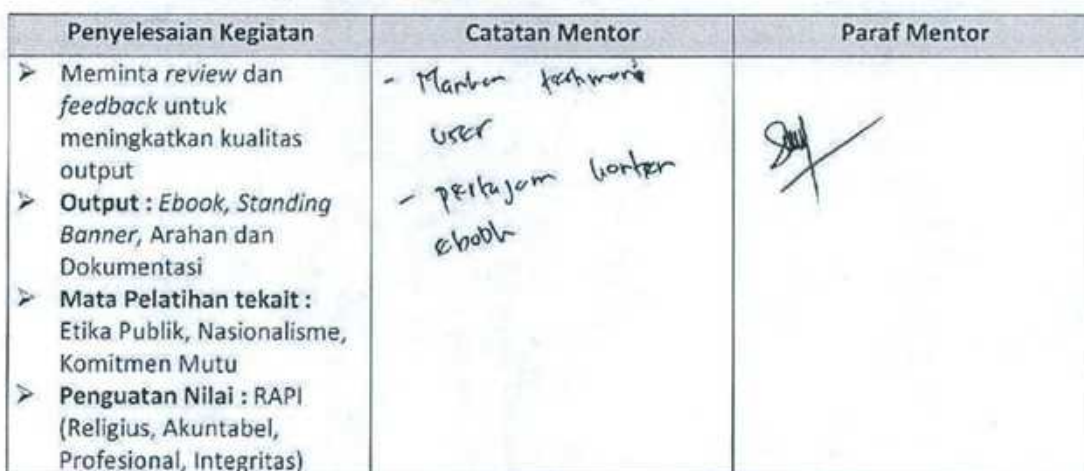 Penyelesaian Kegiatan
Catatan Mentor
Paraf Mentor
➢ Meminta review dan
feedback untuk
meningkatkan kualitas
output
➢ Output : Ebook, Standing
Banner, Arahan dan
Dokumentasi
➢ Mata Pelatihan tekait :
Etika Publik, Nasionalisme,
Komitmen Mutu
➢ Penguatan Nilai : RAPI
(Religius, Akuntabel,
Profesional, Integritas)
- testimoni
user
- pertajam konten
ebook